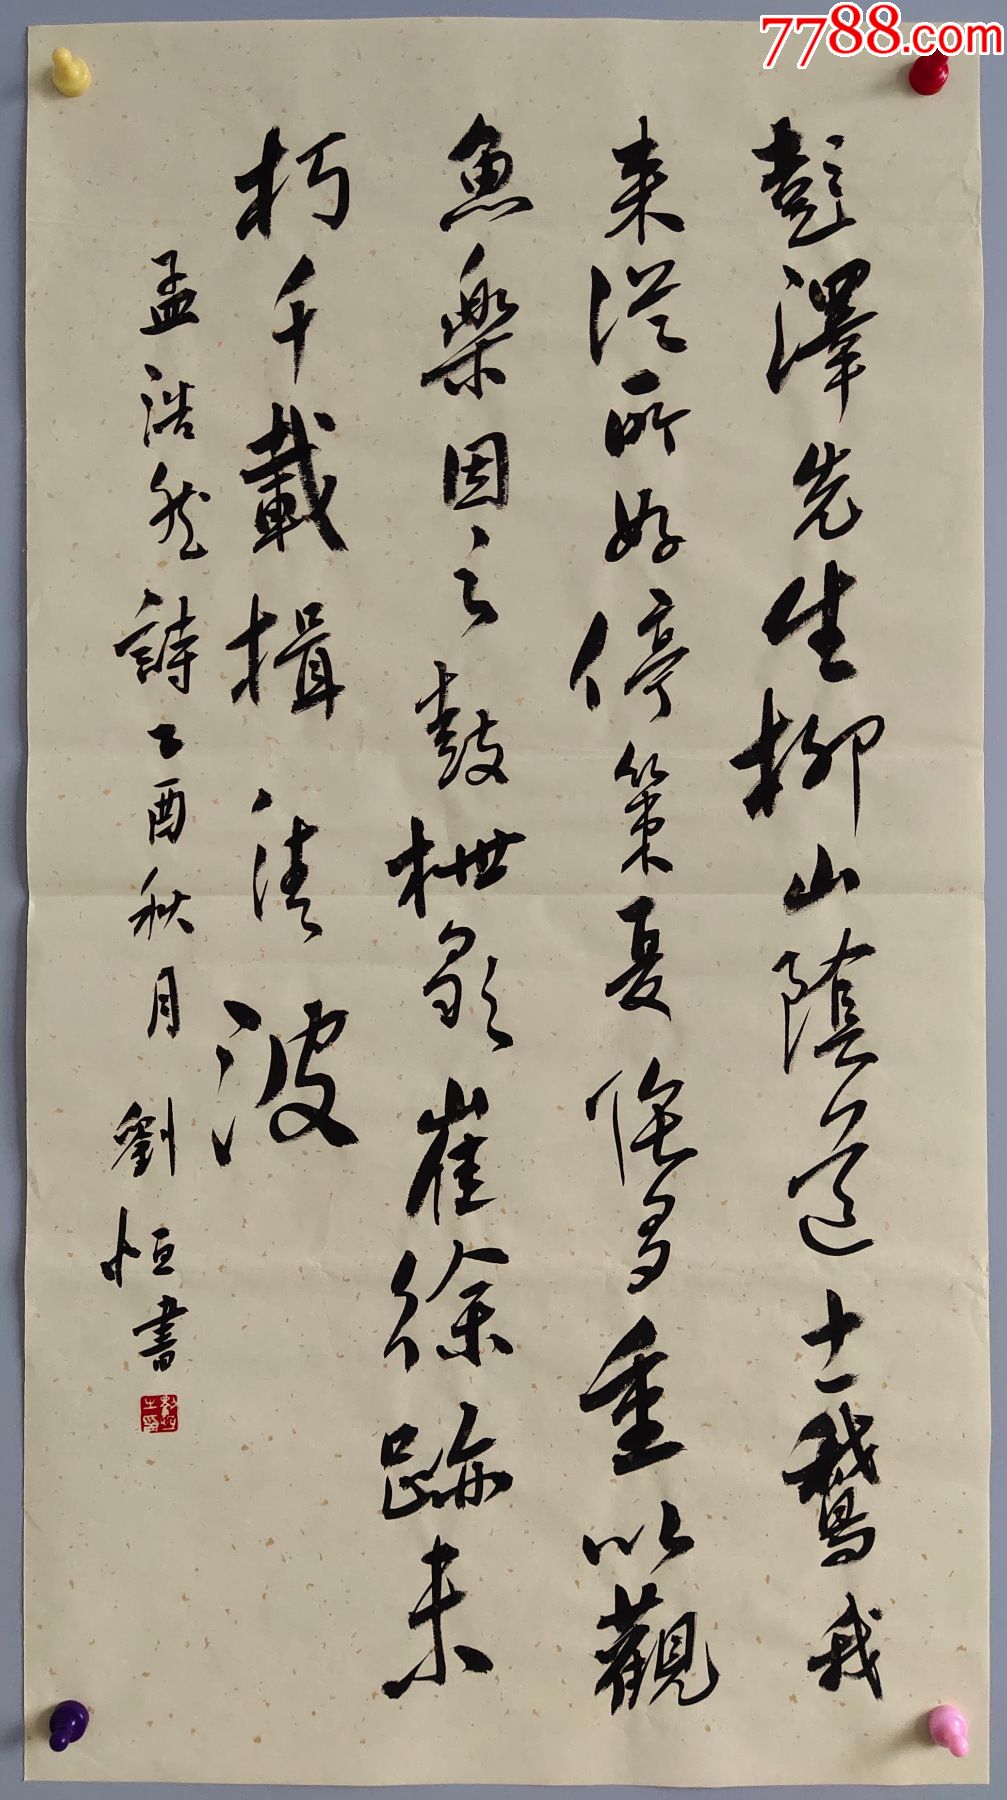 7788.com
彭澤先生柳山陰道士鵝我
来從所好停策夏陰多重以觀
魚樂因之鼓枻歌崔徐跡未
朽千載揖清波
孟浩然詩乙酉秋月劉恒書